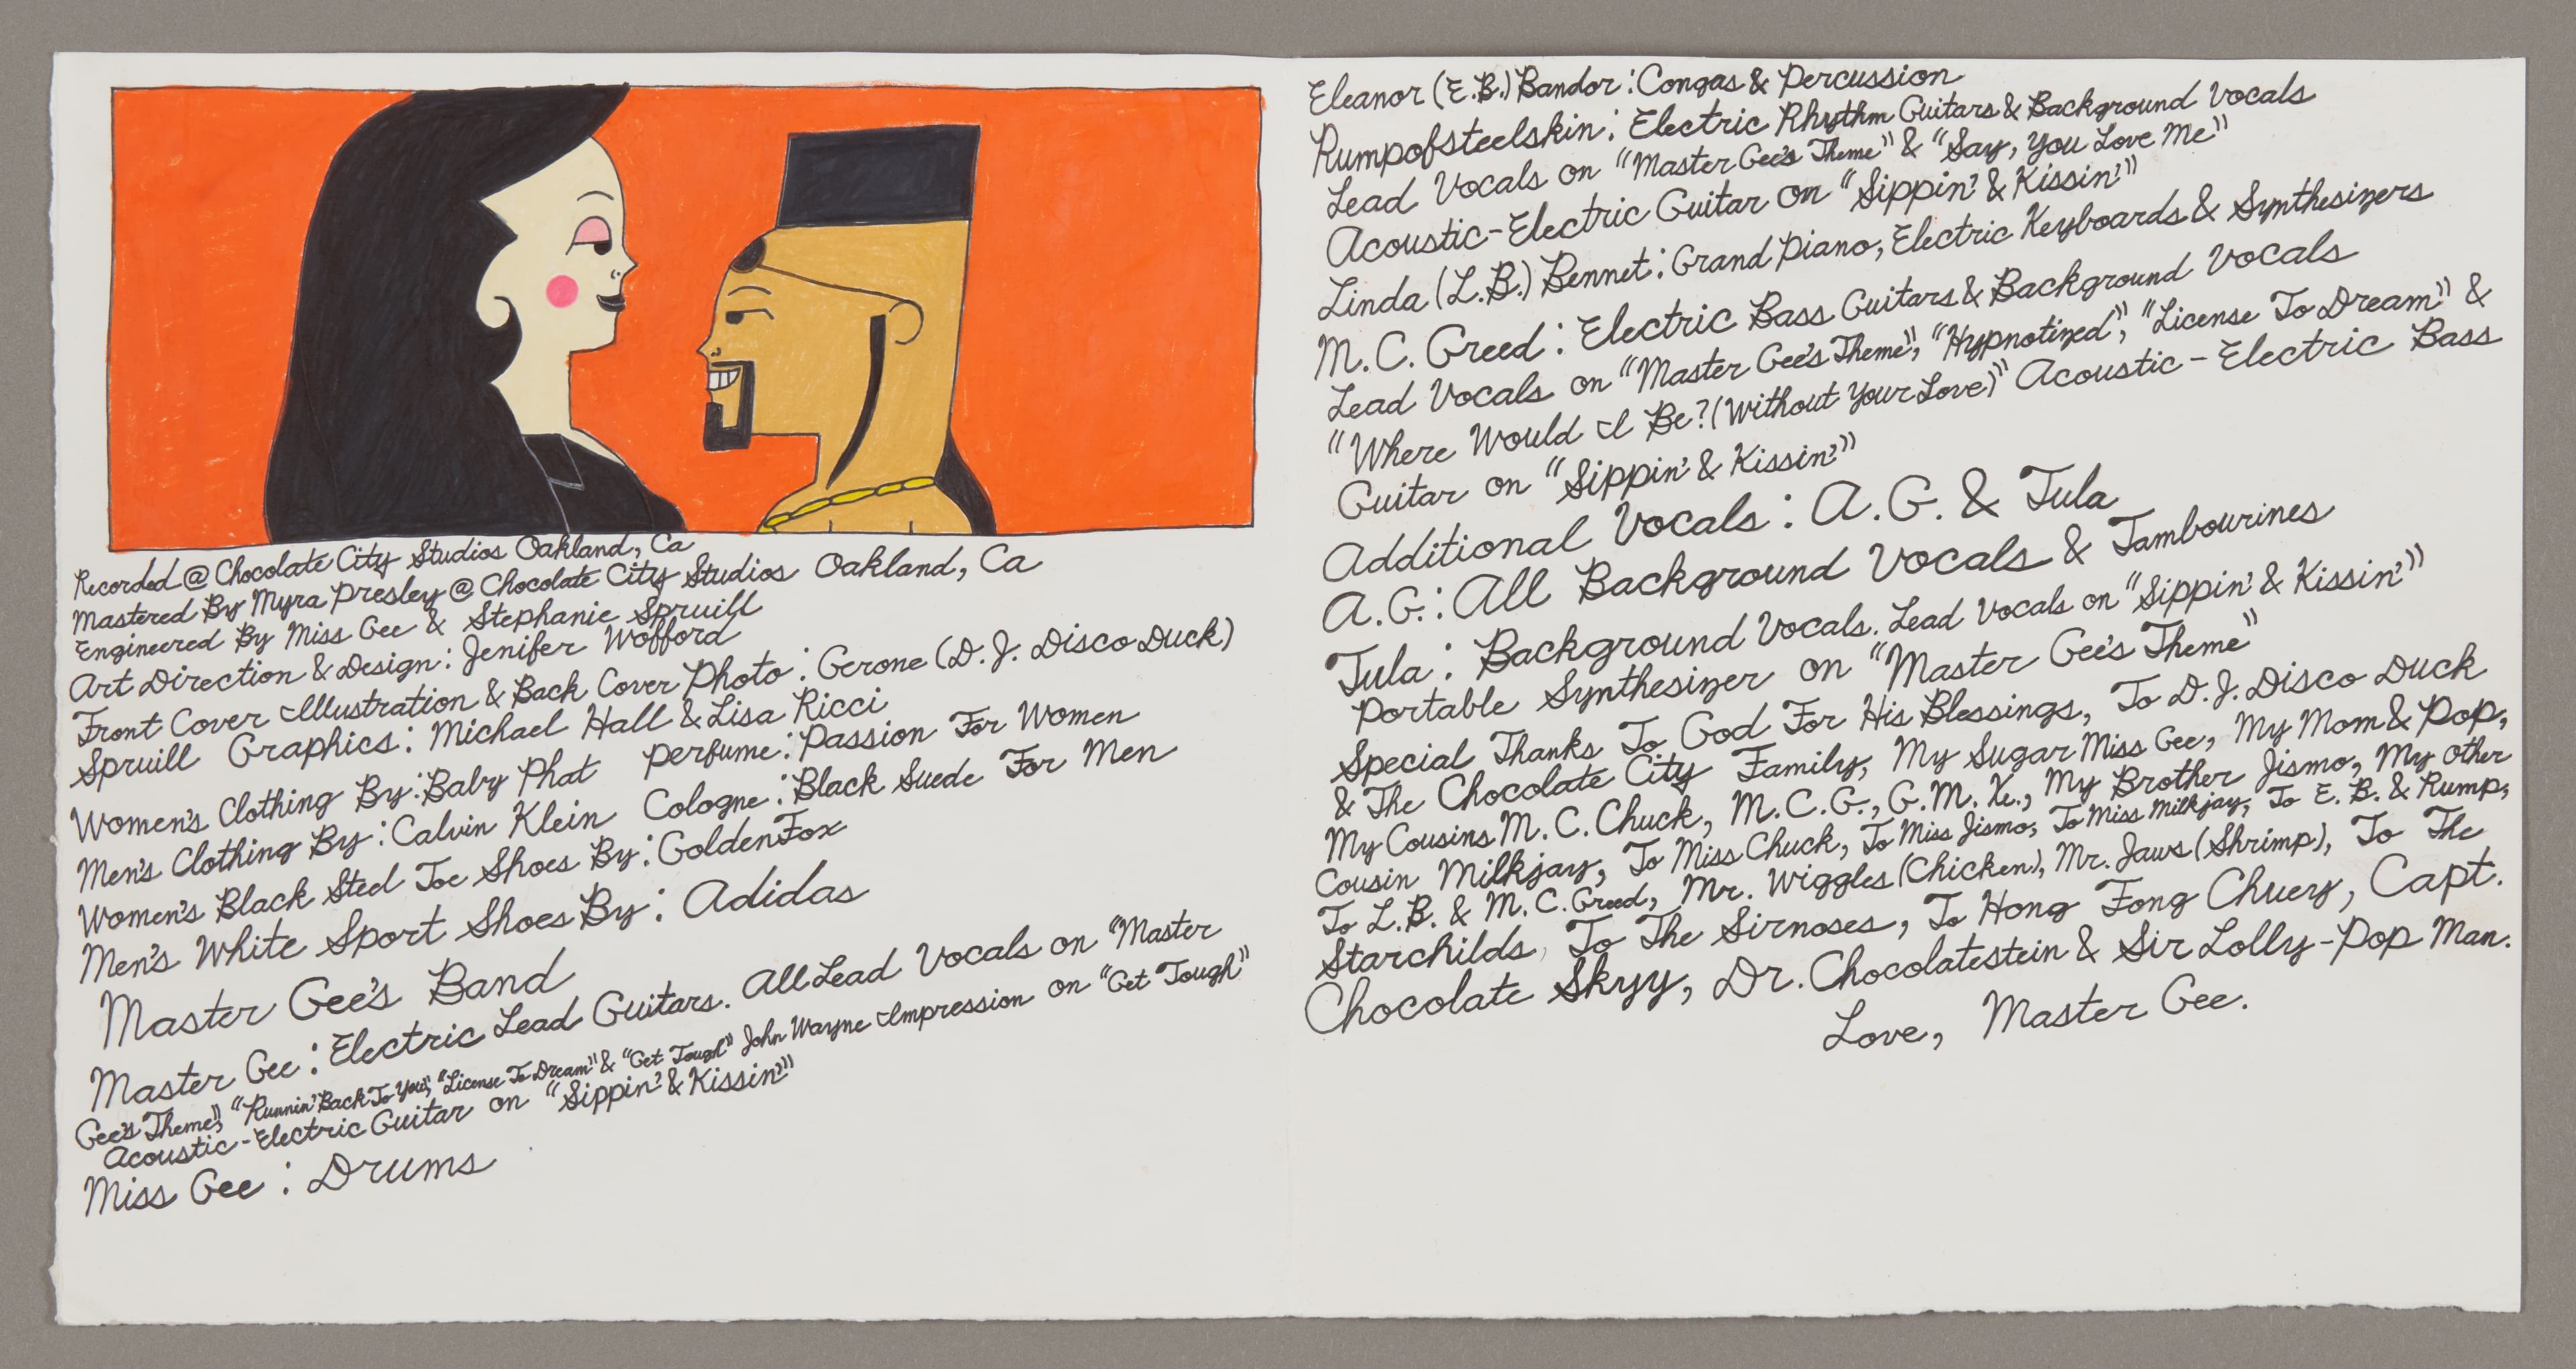 Recorded @ Chocolate City Studios Oakland, Ca
Mastered By Myra Presley @ Chocolate City Studios Oakland, Ca
Engineered By Miss Gee & Stephanie Spruill
Art Direction & Design: Jenifer Wofford
Front Cover Illustration & Back Cover Photo: Gerone (D.J. Disco Duck)
Spruill Graphics: Michael Hall & Lisa Ricci
Women's Clothing By: Baby Phat Perfume: Passion For Women
Men's Clothing By: Calvin Klein Cologne: Black Suede For Men
Women's Black Steel Toe Shoes By: GoldenFox
Men's White Sport Shoes By: Adidas
Master Gee's Band
Master Gee: Electric Lead Guitars. All Lead Vocals on "Master
Gee's Theme", "Runnin' Back To You", "License To Dream" & "Get Tough" John Wayne Impression on "Get Tough"
Acoustic-Electric Guitar on "Sippin' & Kissin'"
Miss Gee: Drums
Eleanor (E.B.) Bandor: Congas & Percussion
Rumpofsteelskin: Electric Rhythm Guitars & Background Vocals
Lead Vocals on "Master Gee's Theme" & "Say, You Love Me"
Acoustic-Electric Guitar on "Sippin' & Kissin'"
Linda (L.B.) Bennet: Grand Piano, Electric Keyboards & Synthesizers
M.C. Greed: Electric Bass Guitars & Background Vocals
Lead Vocals on "Master Gee's Theme", "Hypnotized", "License To Dream" &
"Where Would I Be? (Without Your Love)" Acoustic-Electric Bass
Guitar on "Sippin' & Kissin'"
Additional Vocals: A.G. & Tula
A.G.: All Background Vocals & Tambourines
Tula: Background Vocals. Lead Vocals on "Sippin' & Kissin'"
Portable Synthesizer on "Master Gee's Theme"
Special Thanks To God For His Blessings, To D.J. Disco Duck
& The Chocolate City Family, My Sugar Miss Gee, My Mom & Pop,
My Cousins M.C. Chuck, M.C.G., G.M. Xe., My Brother Jismo, My Other
Cousin Milkjay, To Miss Chuck, To Miss Jismo, To Miss Milkjay, To E.B. & Rump,
To L.B. & M.C. Greed, Mr. Wiggles (Chicken), Mr. Jaws (Shrimp), To The
Starchilds, To The Sirnoses, To Hong Fong Chuey, Capt.
Chocolate Skyy, Dr. Chocolatestein & Sir Lolly-Pop Man.
Love, Master Gee.